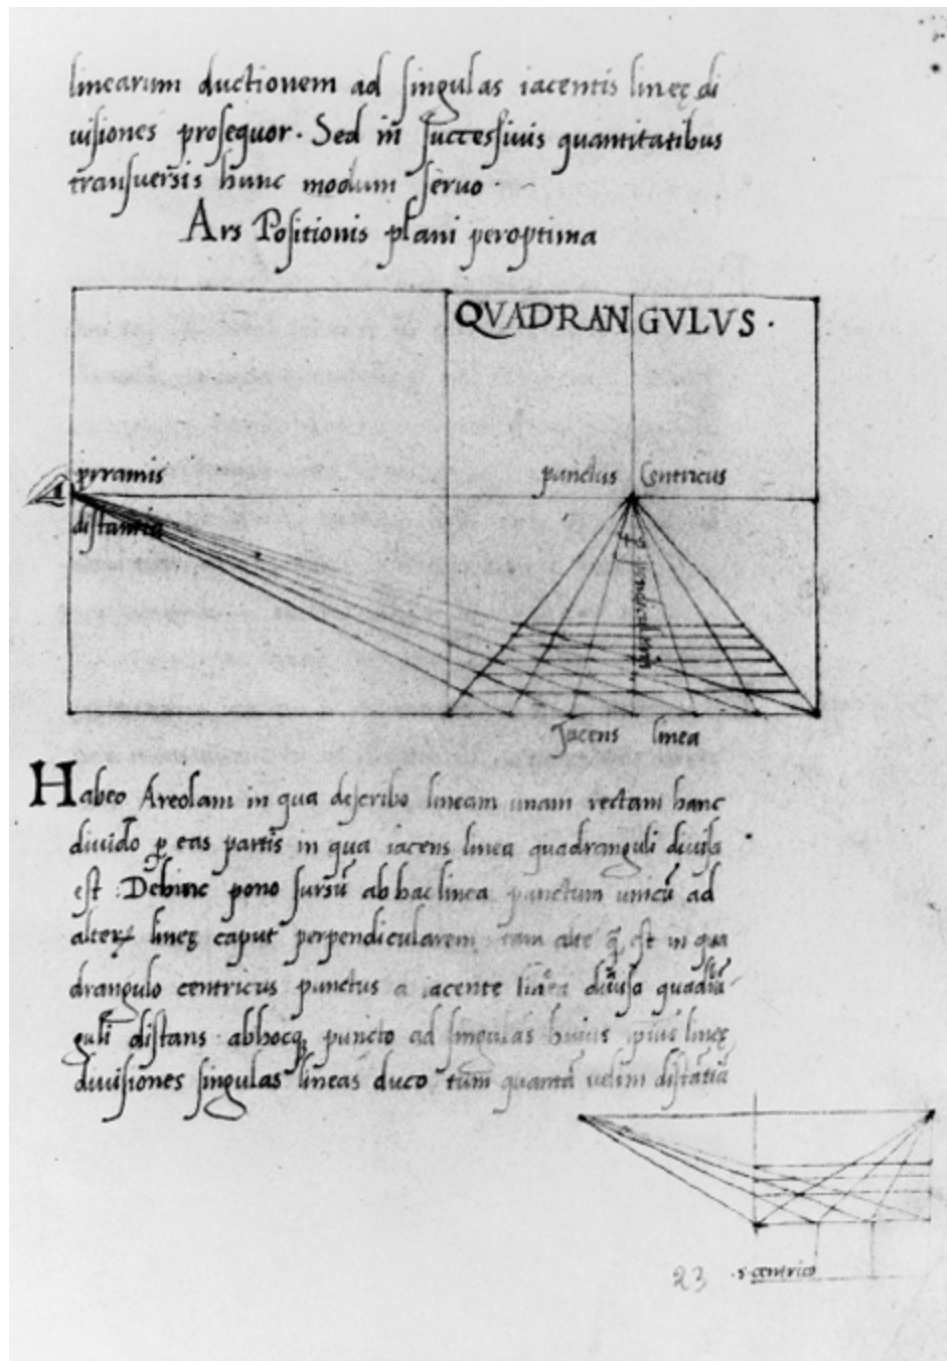 linearum ductionem ad singulas iacentis lineę di
uisiones prosequor. Sed in successiuis quantitatibus
transuersis hunc modum seruo.
Ars Positionis plani peroptima
QVADRANGVLVS.
pyramis
distantia
punctus Centricus
Jacens linea
Habeo Areolam in qua describo lineam unam rectam hanc
diuido ꝑ eas partis in qua iacens linea quadranguli diuisa
est: Dehinc pono sursū ab hac linea punctum unicū ad
lineę caput perpendicularem tam alte est in qua
drangulo centricus punctus a iacente linea diuisa
guli distans abhocq puncto ad singulas huius ipsius lineę
diuisiones singulas lineas duco tum quantā uelim distātiā
23 centrico